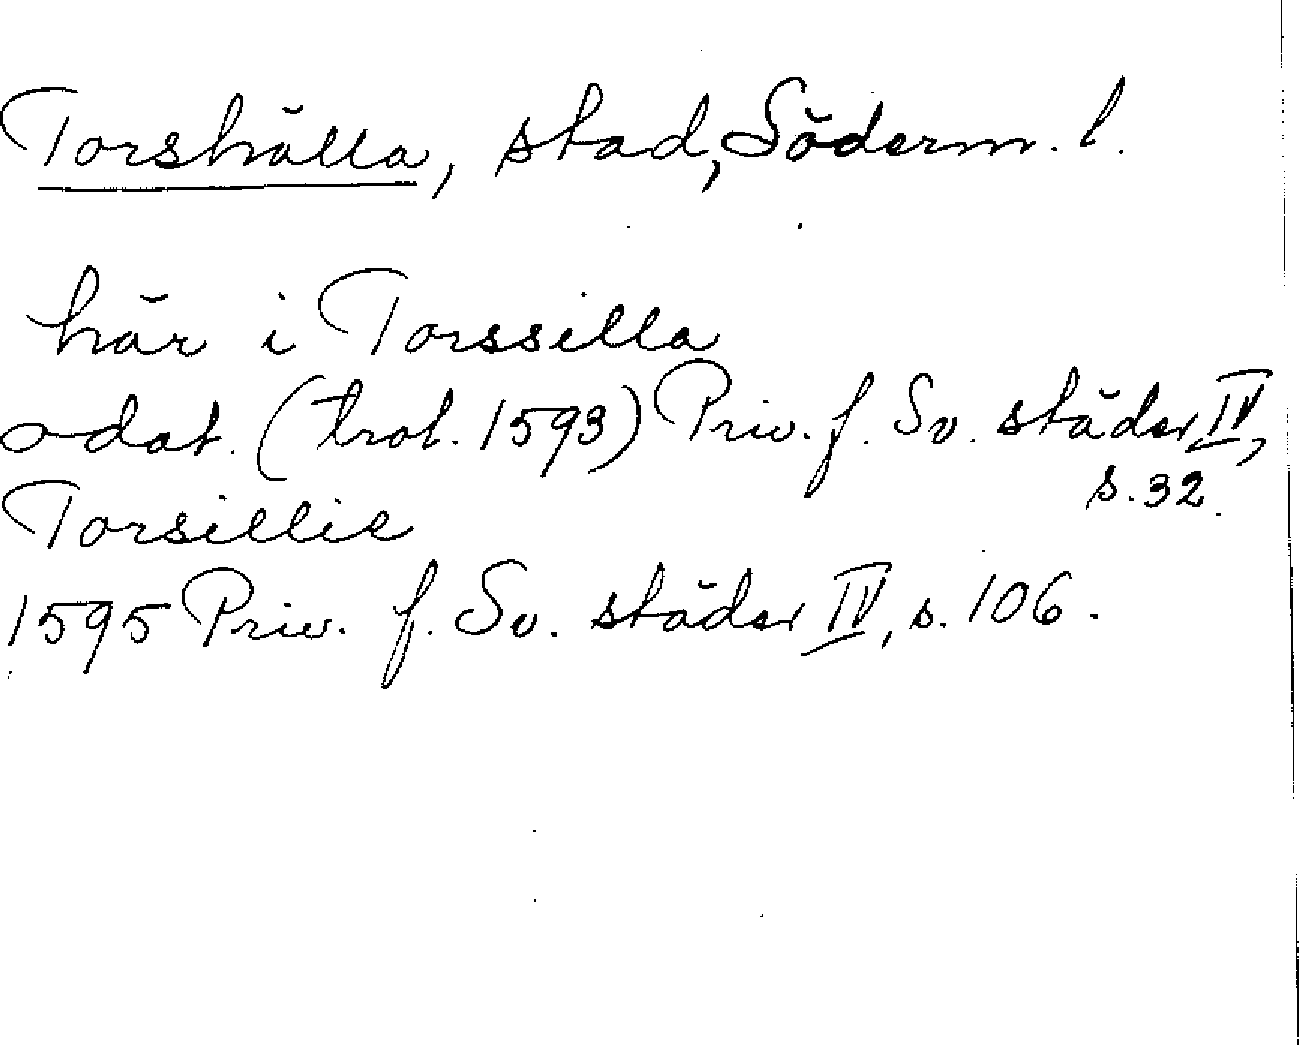 Torshälla, stad, Söderm. l.
här i Torssilla
odat. (trol. 1593) Priv. f. Sv. städer IV,
s. 32.
Torsillie
1595 Priv. f. Sv. städer IV, s. 106.